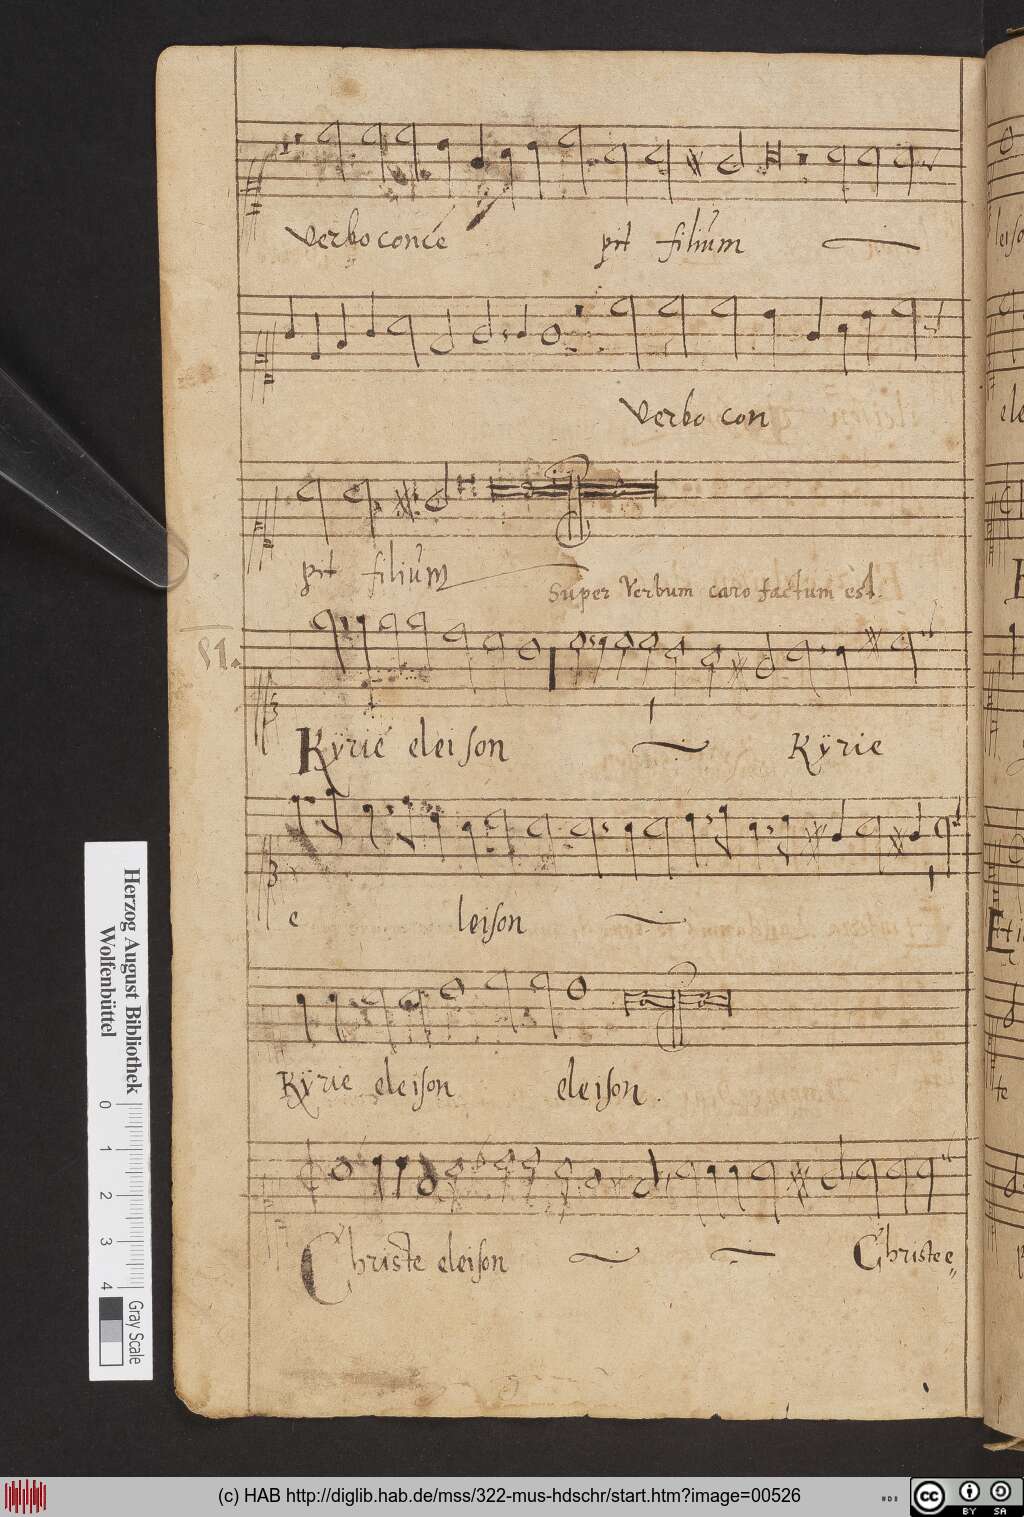 Verbo conce pit filium
Verbo con
pit filium
Super Verbum caro factum est.
81.
Kÿrie eleison Kÿrie
e leison
Kÿrie eleison eleison.
Christe eleison Christe e
Herzog August Bibliothek
Wolfenbüttel
0 1 2 3 4
Gray Scale
(c) HAB http://diglib.hab.de/mss/322-mus-hdschr/start.htm?image=00526
cc BY SA